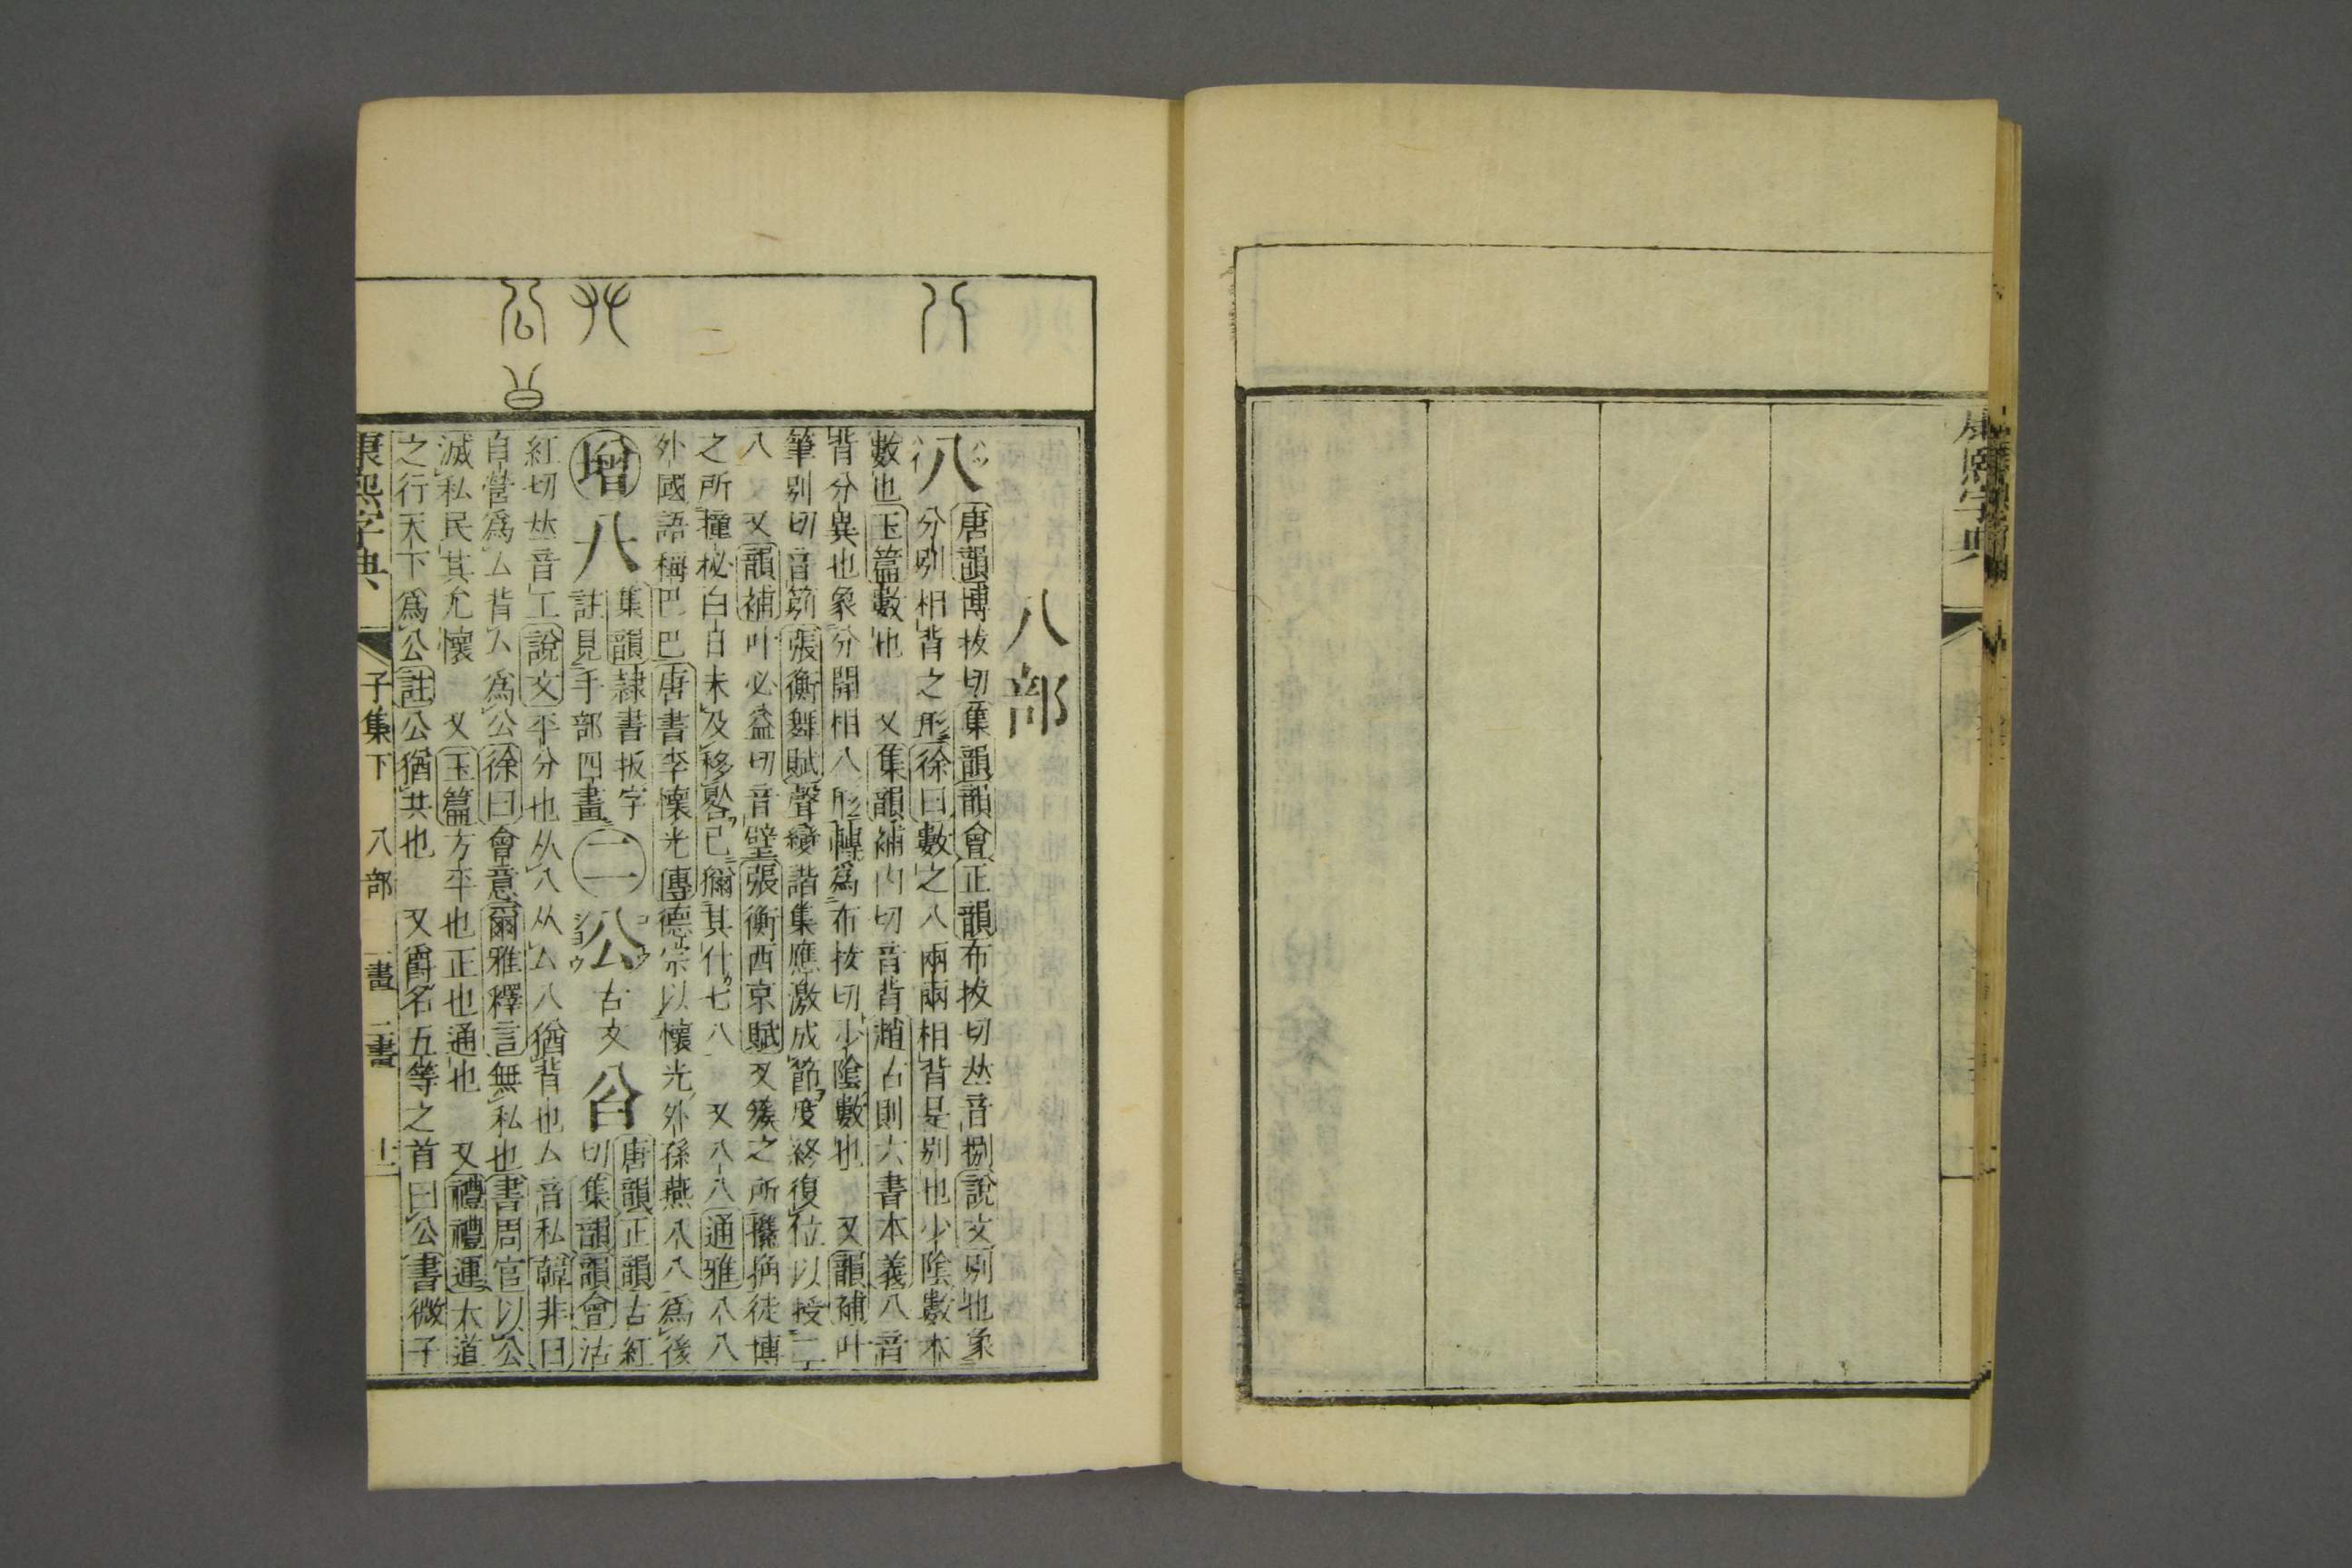 康熙字典
八部
八 唐韻博拔切集韻韻會正韻布拔切𠀤音捌說文別也象
ハツ
分別相背之形徐曰數之八兩兩相背是別也少陰數木
數也玉篇數也 又集韻補內切音背趙古則六書本義八音
背分異也象分開相八形轉爲布拔切少陰數也 又韻補叶
筆別切音𥬞張衡舞賦聲變諧集應激成節度終復位以授二
八 又韻補叶必益切音璧張衡西京賦叉簇之所攙捔徒博
之所撞㧙白日未及移晷已獮其什七八 又八八通雅八八
外國語稱巴巴唐書李懷光傳德宗以懷光外孫燕八八爲後
增 𠔁 集韻隷書扳字
註見手部四畫 二 公 古文㒶 唐韻正韻古紅
コウ
ショウ
切集韻韻會沽
紅切𠀤音工說文平分也从八从厶八猶背也厶音私韓非曰
自營爲厶背厶爲公徐曰會意爾雅釋言無私也書周官以公
滅私民其允懷 又玉篇方平也正也通也 又禮禮運大道
之行天下爲公註公猶共也 又爵名五等之首曰公書微子
康熙字典 子集下 八部 一畫 二畫 十二